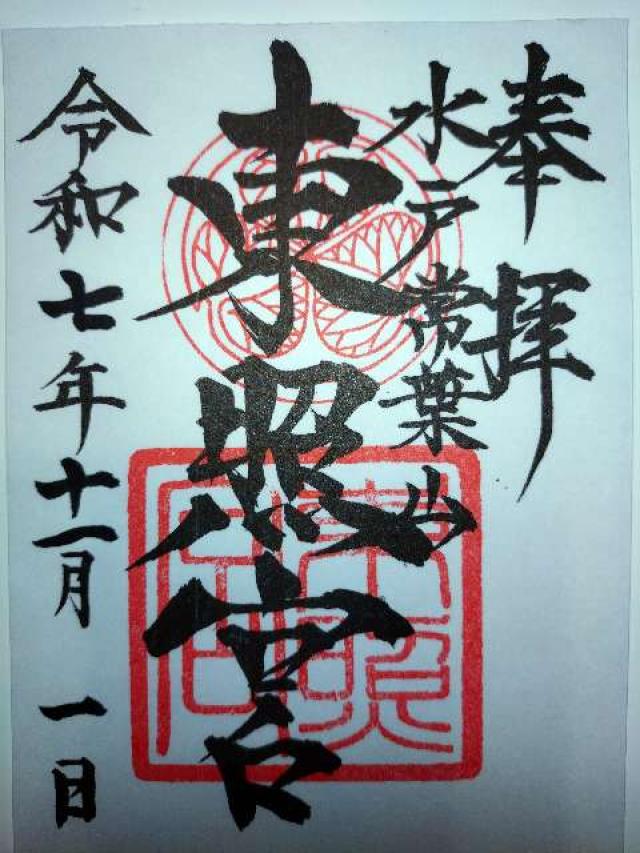 奉拝
水戸常葉山
東照宮
令和七年十一月一日